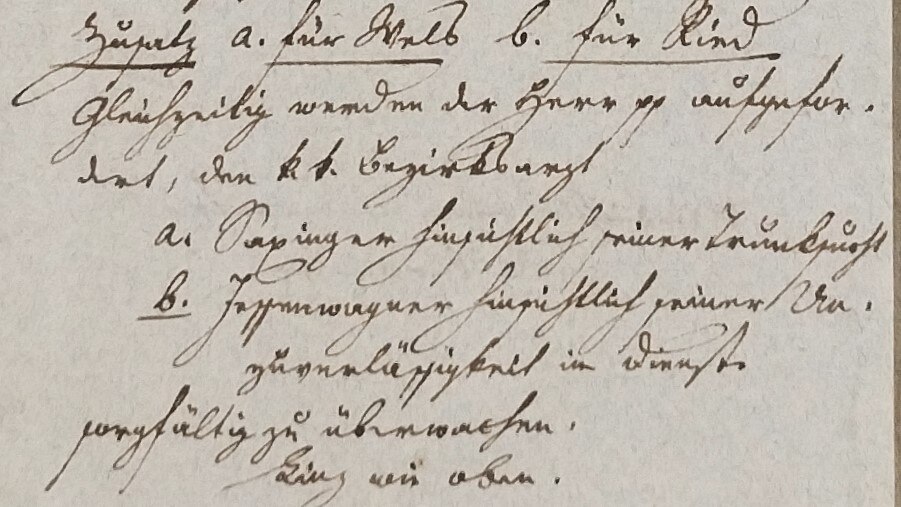 Zusatz a. für Wels b. für Ried
Gleichzeitig werden der Herr pp aufgefor-
dert, den k k. Bezirksarzt
a. Saxinger hinsichtlich seiner Trunksucht
b. hinsichtlich seiner Un-
zuverlässigkeit im Dienste
sorgfältig zu überwachen.
Linz wie oben.